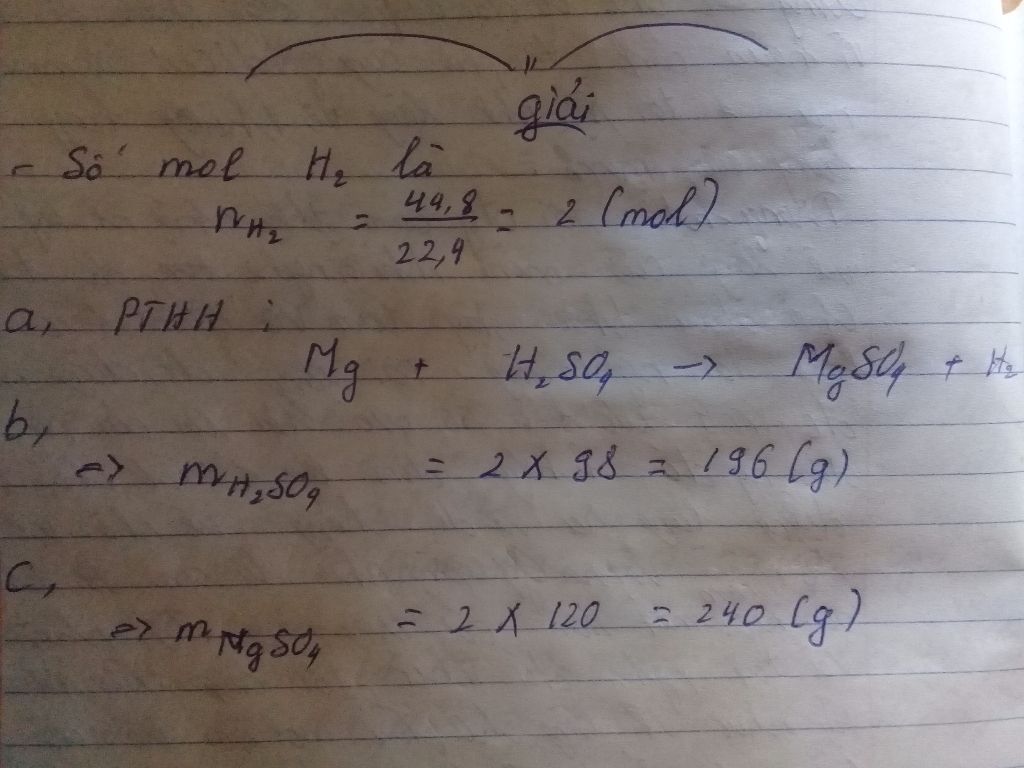 giải
- Số mol H₂ là
n_H₂ = 44,8/22,4 = 2 (mol)
a, PTHH :
Mg + H₂SO₄ -> MgSO₄ + H₂
b,
=> m_H₂SO₄ = 2 x 98 = 196 (g)
c,
=> m_MgSO₄ = 2 x 120 = 240 (g)